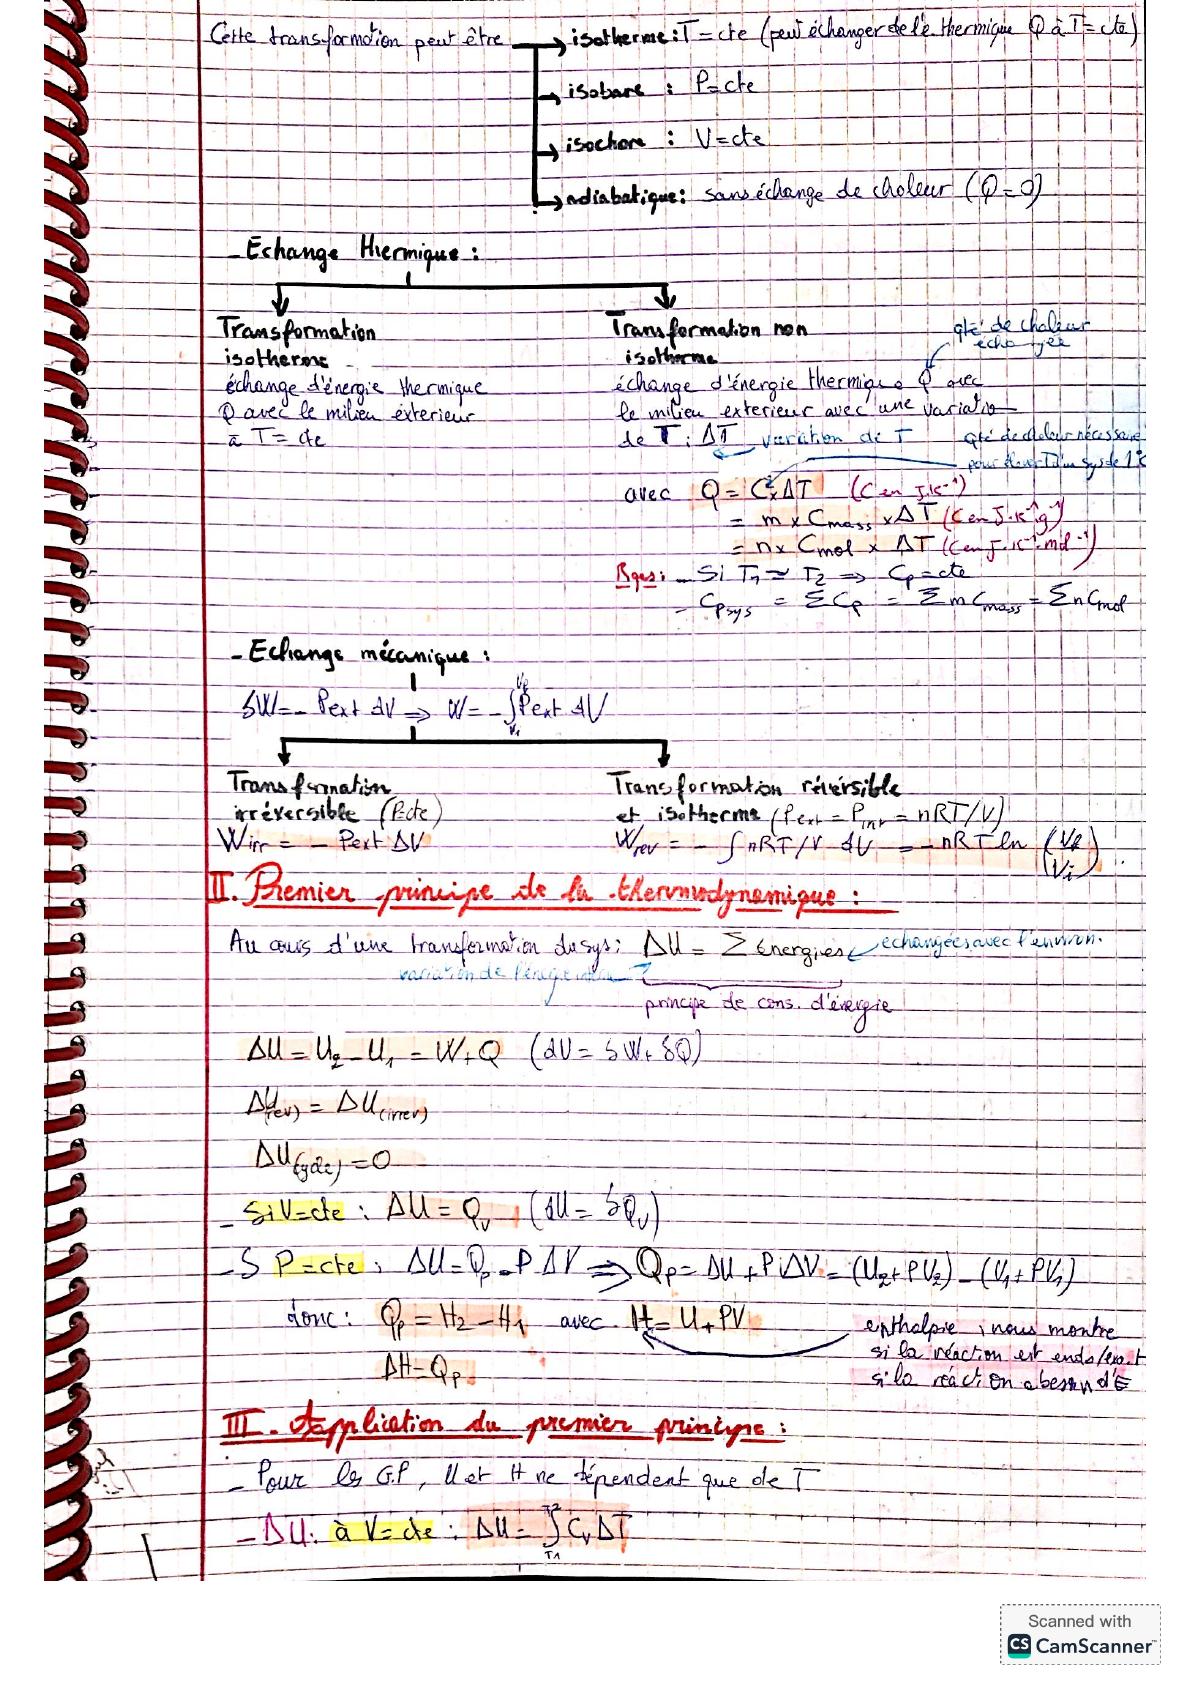 Cette transformation peut être → isotherme : T = cte (peut échanger de l'é thermique Q à T = cte)
→ isobare : P = cte
→ isochore : V = cte
→ adiabatique : sans échange de chaleur (Q = 0)
- Echange thermique :
Transformation isotherme
échange d'énergie thermique
Q avec le milieu éxterieur
à T = cte
Transformation non isotherme
qté de chaleur échangée
échange d'énergie thermique Q avec
le milieu exterieur avec une variatio
de T : ΔT variation de T
qté de chaleur nécessaire
pour élever T d'un sys de 1°C
avec Q = C × ΔT (C en J.K⁻¹)
= m × Cmass × ΔT (C en J.K⁻¹g⁻¹)
= n × Cmol × ΔT (C en J.K⁻¹.mol⁻¹)
Rqes : - Si T₁ ≃ T₂ ⇒ Cp = cte
- Cpsys = ΣCp = Σm Cmass = Σn Cmol
- Echange mécanique :
δW = - Pext dV ⇒ W = - ∫ Pext dV
Transformation
irréversible (P cte)
Wirr = - Pext ΔV
Transformation réversible
et isotherme (Pext = Pint = nRT/V)
Wrev = - ∫ nRT/V dV = - nRT ln (Vf/Vi)
II. Premier principe de la thermodynamique :
Au cours d'une transformation du sys : ΔU = Σ énergies échangées avec l'environ.
variation de l'énergie interne
principe de cons. d'énergie
ΔU = U₂ - U₁ = W + Q (dU = δW + δQ)
ΔU(rev) = ΔU(irrev)
ΔU(cycle) = 0
- Si V = cte : ΔU = Qv (dU = δQv)
- S P = cte : ΔU = Qp - P ΔV ⇒ Qp = ΔU + P ΔV = (U₂ + PV₂) - (U₁ + PV₁)
donc : Qp = H₂ - H₁ avec H = U + PV
enthalpie, nous montre
si la réaction est endo/exo.t
si la réaction a besoin d'E
ΔH = Qp
III - Application du premier principe :
- Pour les G.P, U et H ne dépendent que de T
- ΔU : à V = cte : ΔU = ∫ Cv ΔT
T2
T1
Scanned with
CS CamScanner